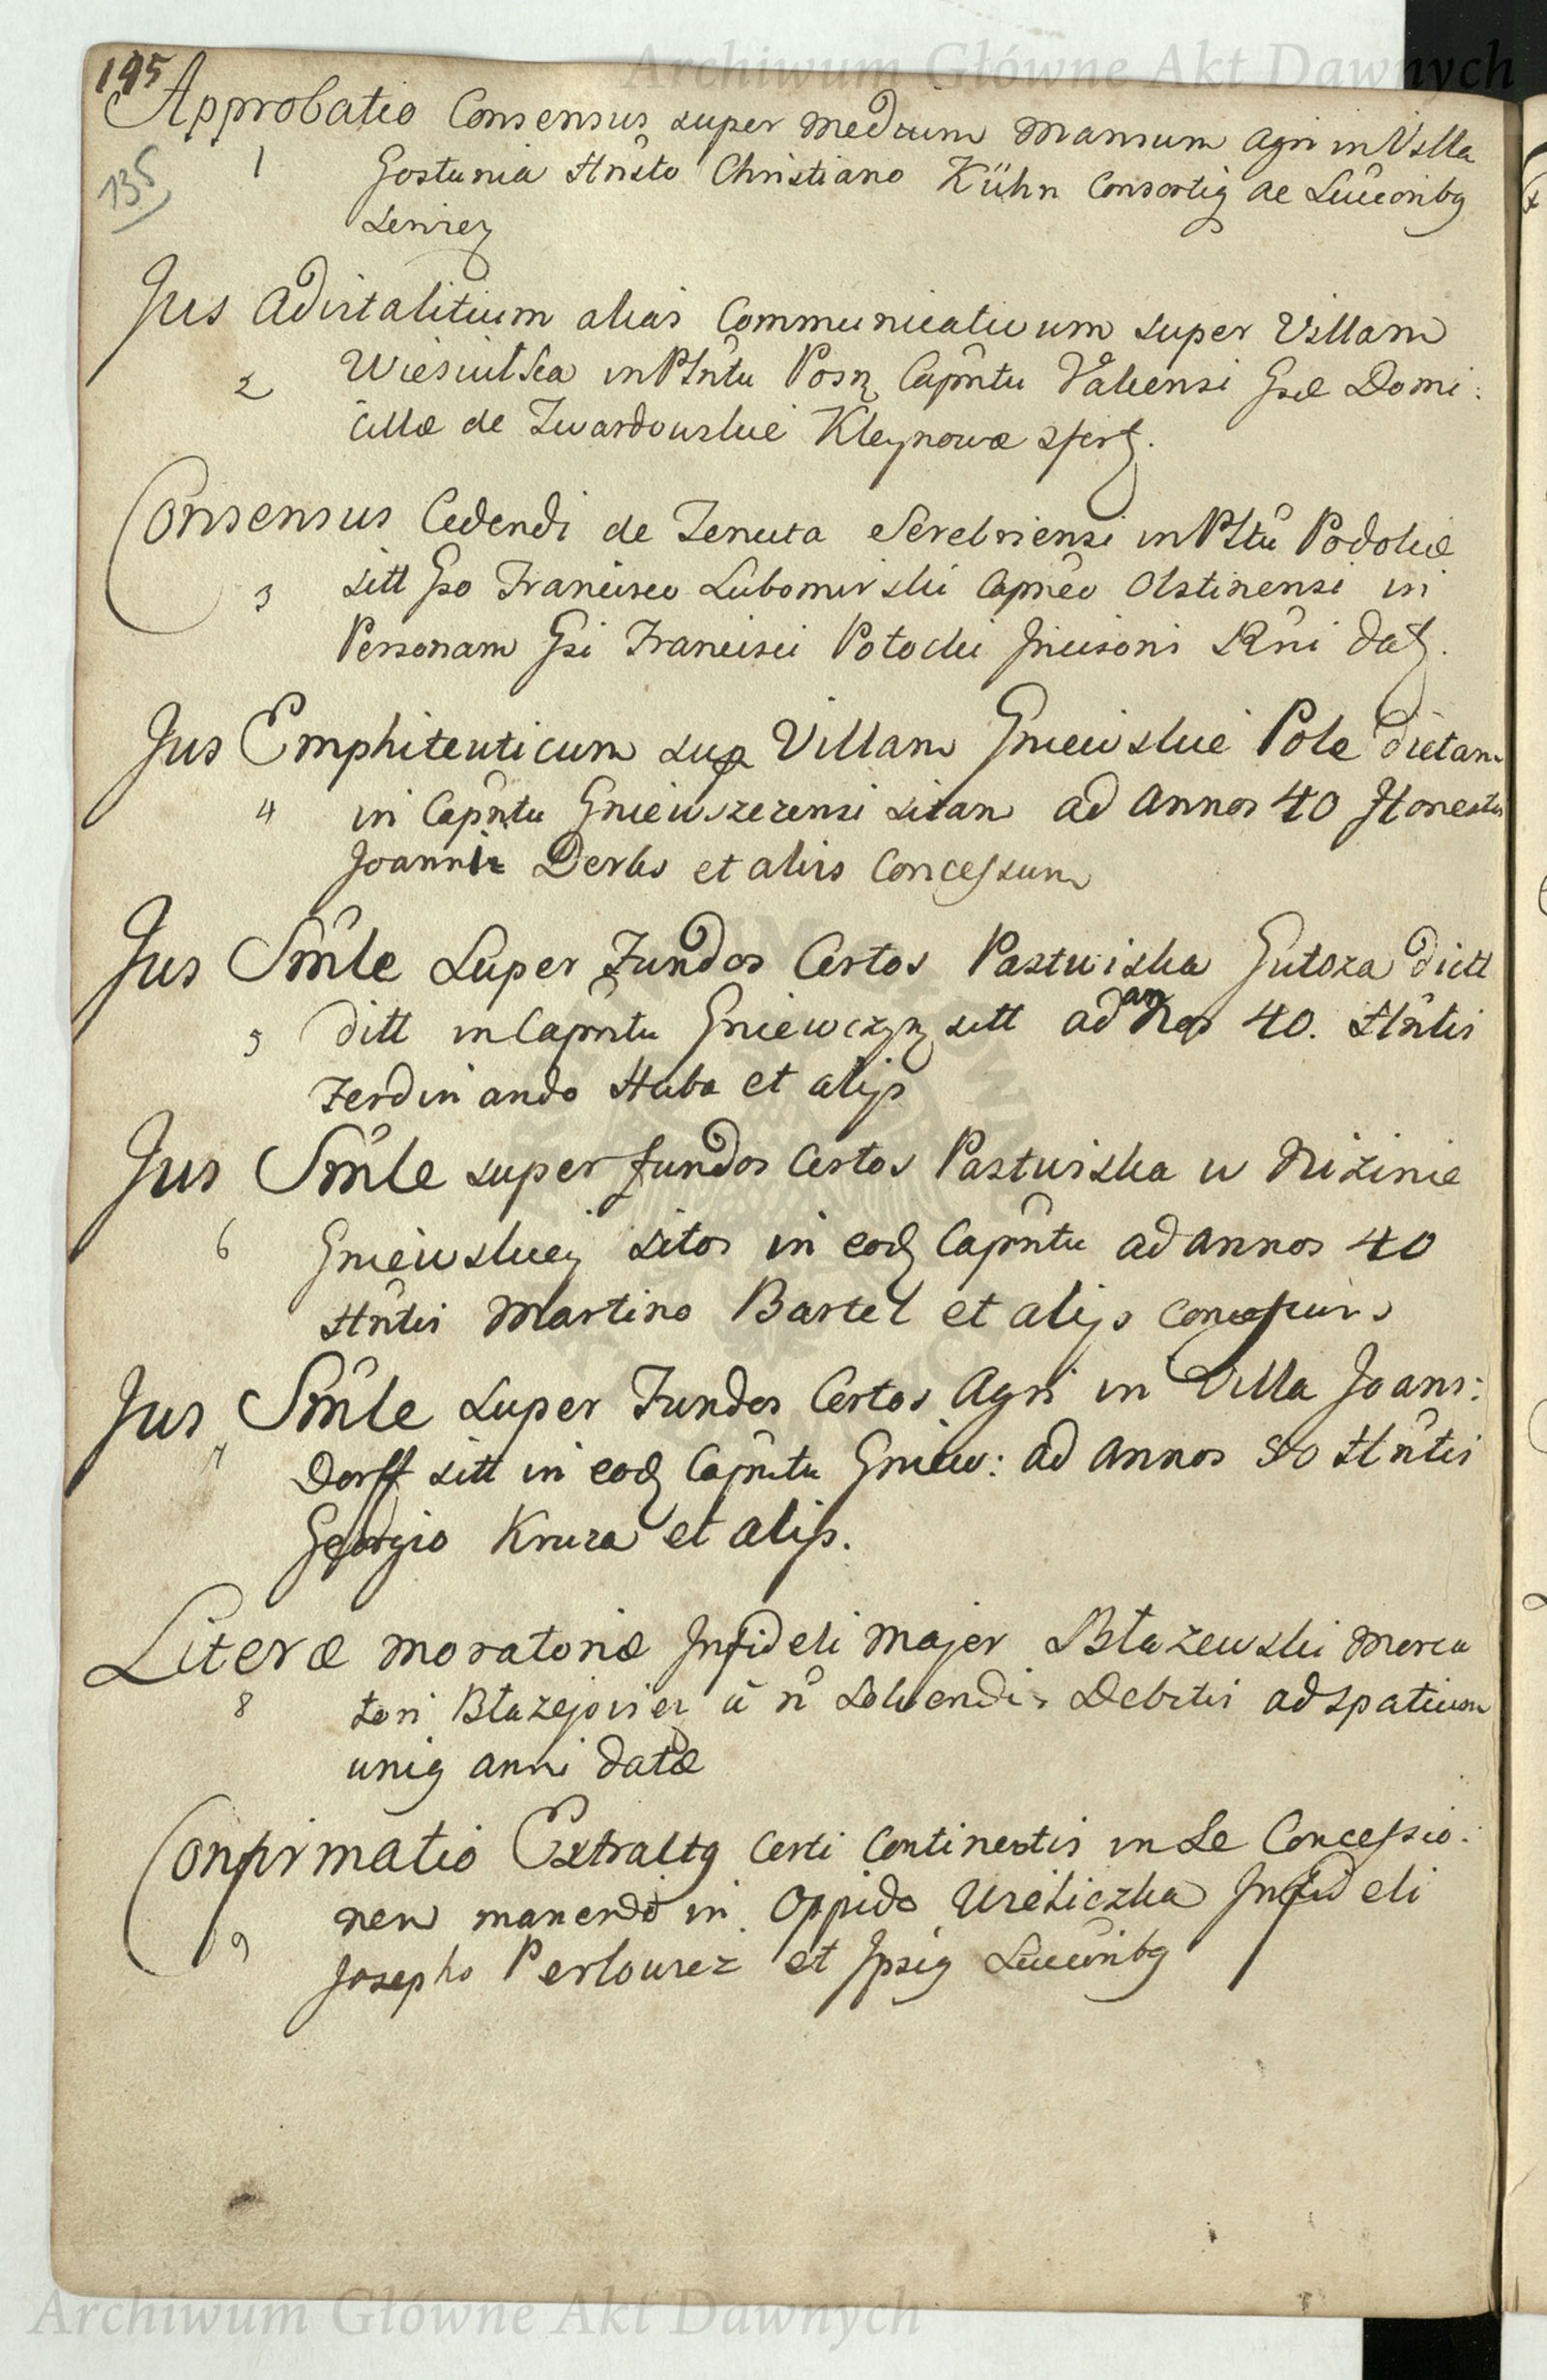 Archiwum Główne Akt Dawnych
195
135
Approbatio Consensus super medium mansum agri in Villa
1 Gostunia Hnsto Christiano Kühn Consortiq ac Succonibq
Leniey
Jus advitalitium alias Communicativum super Villam
2 Wiesiulka in Pltntu Posn Capntu Valcensi Gsæ Domi:
cillæ de Twardowskie Kleynowæ
Consensus Cedendi de Tenuta Serebriensi in Pltu Podoliæ
3 sitt Gso Francisco Lubomirski Capneo Olstinensi in
Personam Gsi Francisci Potocki Jncisoris Rni dat.
Jus Emphiteuticum sup Villam Gniewskie Pole dictam
4 in Capntu Gniewszczensi sitam ad annos 40 Honestis
Joanni Derks et aliis Concessum
Jus Smile Super Fundos Certos Pastwiska Gutoza dictt
5 ditt in Capntu Gniewczn sitt ad annos 40. Hntis
Ferdin ando Huba et alijs
Jus Smile super fundos Certos Pastwiska w Nizinie
6 Gniewskiey sitos in eod Capntu ad annos 40
Hntis Martino Bartel et alijs
Jus Smile Super Fundos Certos Agri in Villa Joans:
7 Dorff sitt in eod Capntu Gniew: ad annos 80 Hntis
Georgio Kruza et alijs.
Literæ moratoriæ Jnfideli Majer Błazewski Merca
8 tori Błazejovien a n Solvendis Debitis ad spatium
uniq anni datæ
Confirmatio Extraltq Certi Continentis in Se Concessio:
9 nem manendi in Oppido Uscieliczka Jnfideli
Josepho Perlowicz et Jpsiq Succonibq
Archiwum Główne Akt Dawnych